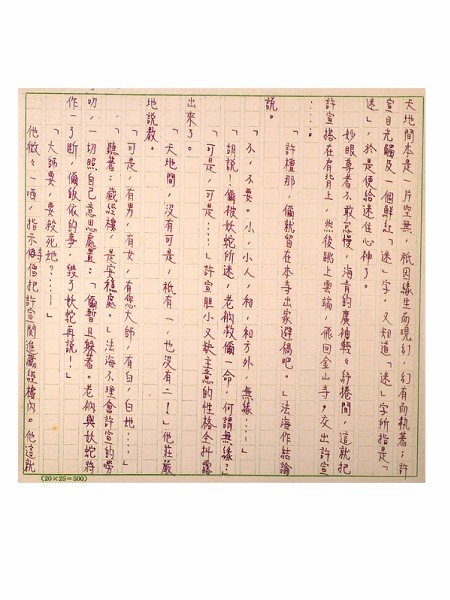 天地間本是一片空無，祇因緣生而現幻，幻有而執著；許
宣目光觸及一個鮮紅「迷」字，又知道「迷」字所指是「
迷」，於是便給迷住心神了。
妙眼尊者不敢怠慢，海青的廣袖輕々紓捲間，這就把
許宣搭在肩背上，然後跳上雲端，飛回金山寺，交出許宣
……。
「許檀那，儞就留在本寺出家避禍吧。」法海作結論
說。
「不，不要。小，小人，相，和方外，無緣……」
「胡說！儞被妖蛇所迷，老衲救儞一命，何謂無緣？
「可是，可是……」許宣胆小又缺主意的性格全抖露
出來了。
「天地間，沒有可是，祇有一，也沒有二！」他莊嚴
地說教。
「可是，有男，有女，有您大師，有白，白她……」
「聽著：藏經樓，是安穩處。」法海不理會許宣的勞
叨，一切照自己意思處置：「儞暫且躲著。老衲與妖蛇將
作一了斷，儞皈依的事，毀了妖蛇再說！」
「大師要，要殺死她？……」
他微々一哂，指示侍僧把許宣関進藏經樓內。他這就
(20×25=500)